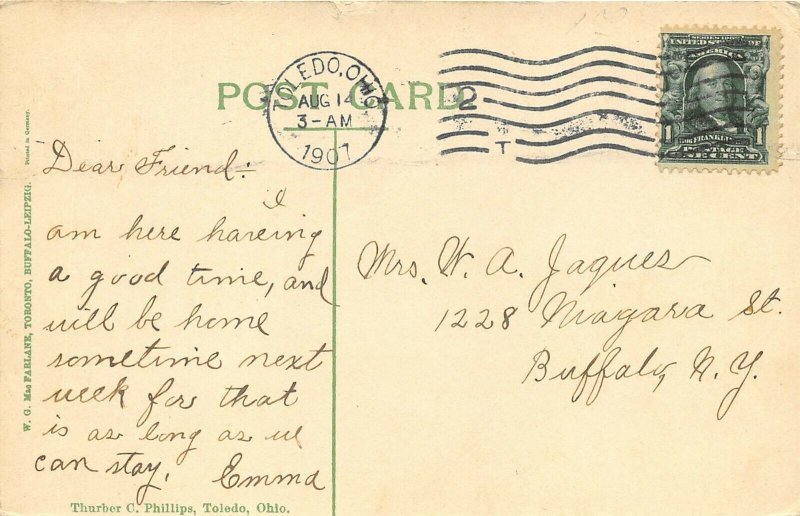 POST CARD
TOLEDO, OHIO
AUG 14
3-AM
1907
2
T
SERIES 1902
UNITED STATES OF
AMERICA
1 FRANKLIN 1
POSTAGE
ONE CENT
Dear Friend:
I
am here haveing
a good time, and
will be home
sometime next
week for that
is as long as we
can stay. Emma
Mrs. W. A. Jaques
1228 Niagara St.
Buffalo, N. Y.
W. G. MacFARLANE, TORONTO, BUFFALO-LEIPZIG. Printed in Germany.
Thurber C. Phillips, Toledo, Ohio.